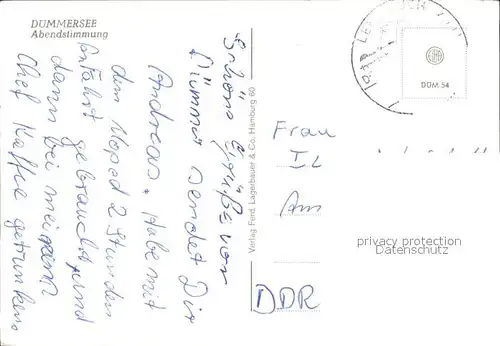 DÜMMERSEE
Abendstimmung
Schöne Grüße von
Dümmer sendet Dir
Andreas. Habe mit
dem Moped 2 Stunden
Anfahrt gebraucht und
dann bei meinem
Chef Kaffee getrunken.
Verlag Ferd. Lagerbauer & Co. Hamburg 60
DÜM 54
Frau
Am
DDR
privacy protection
Oldthing.de